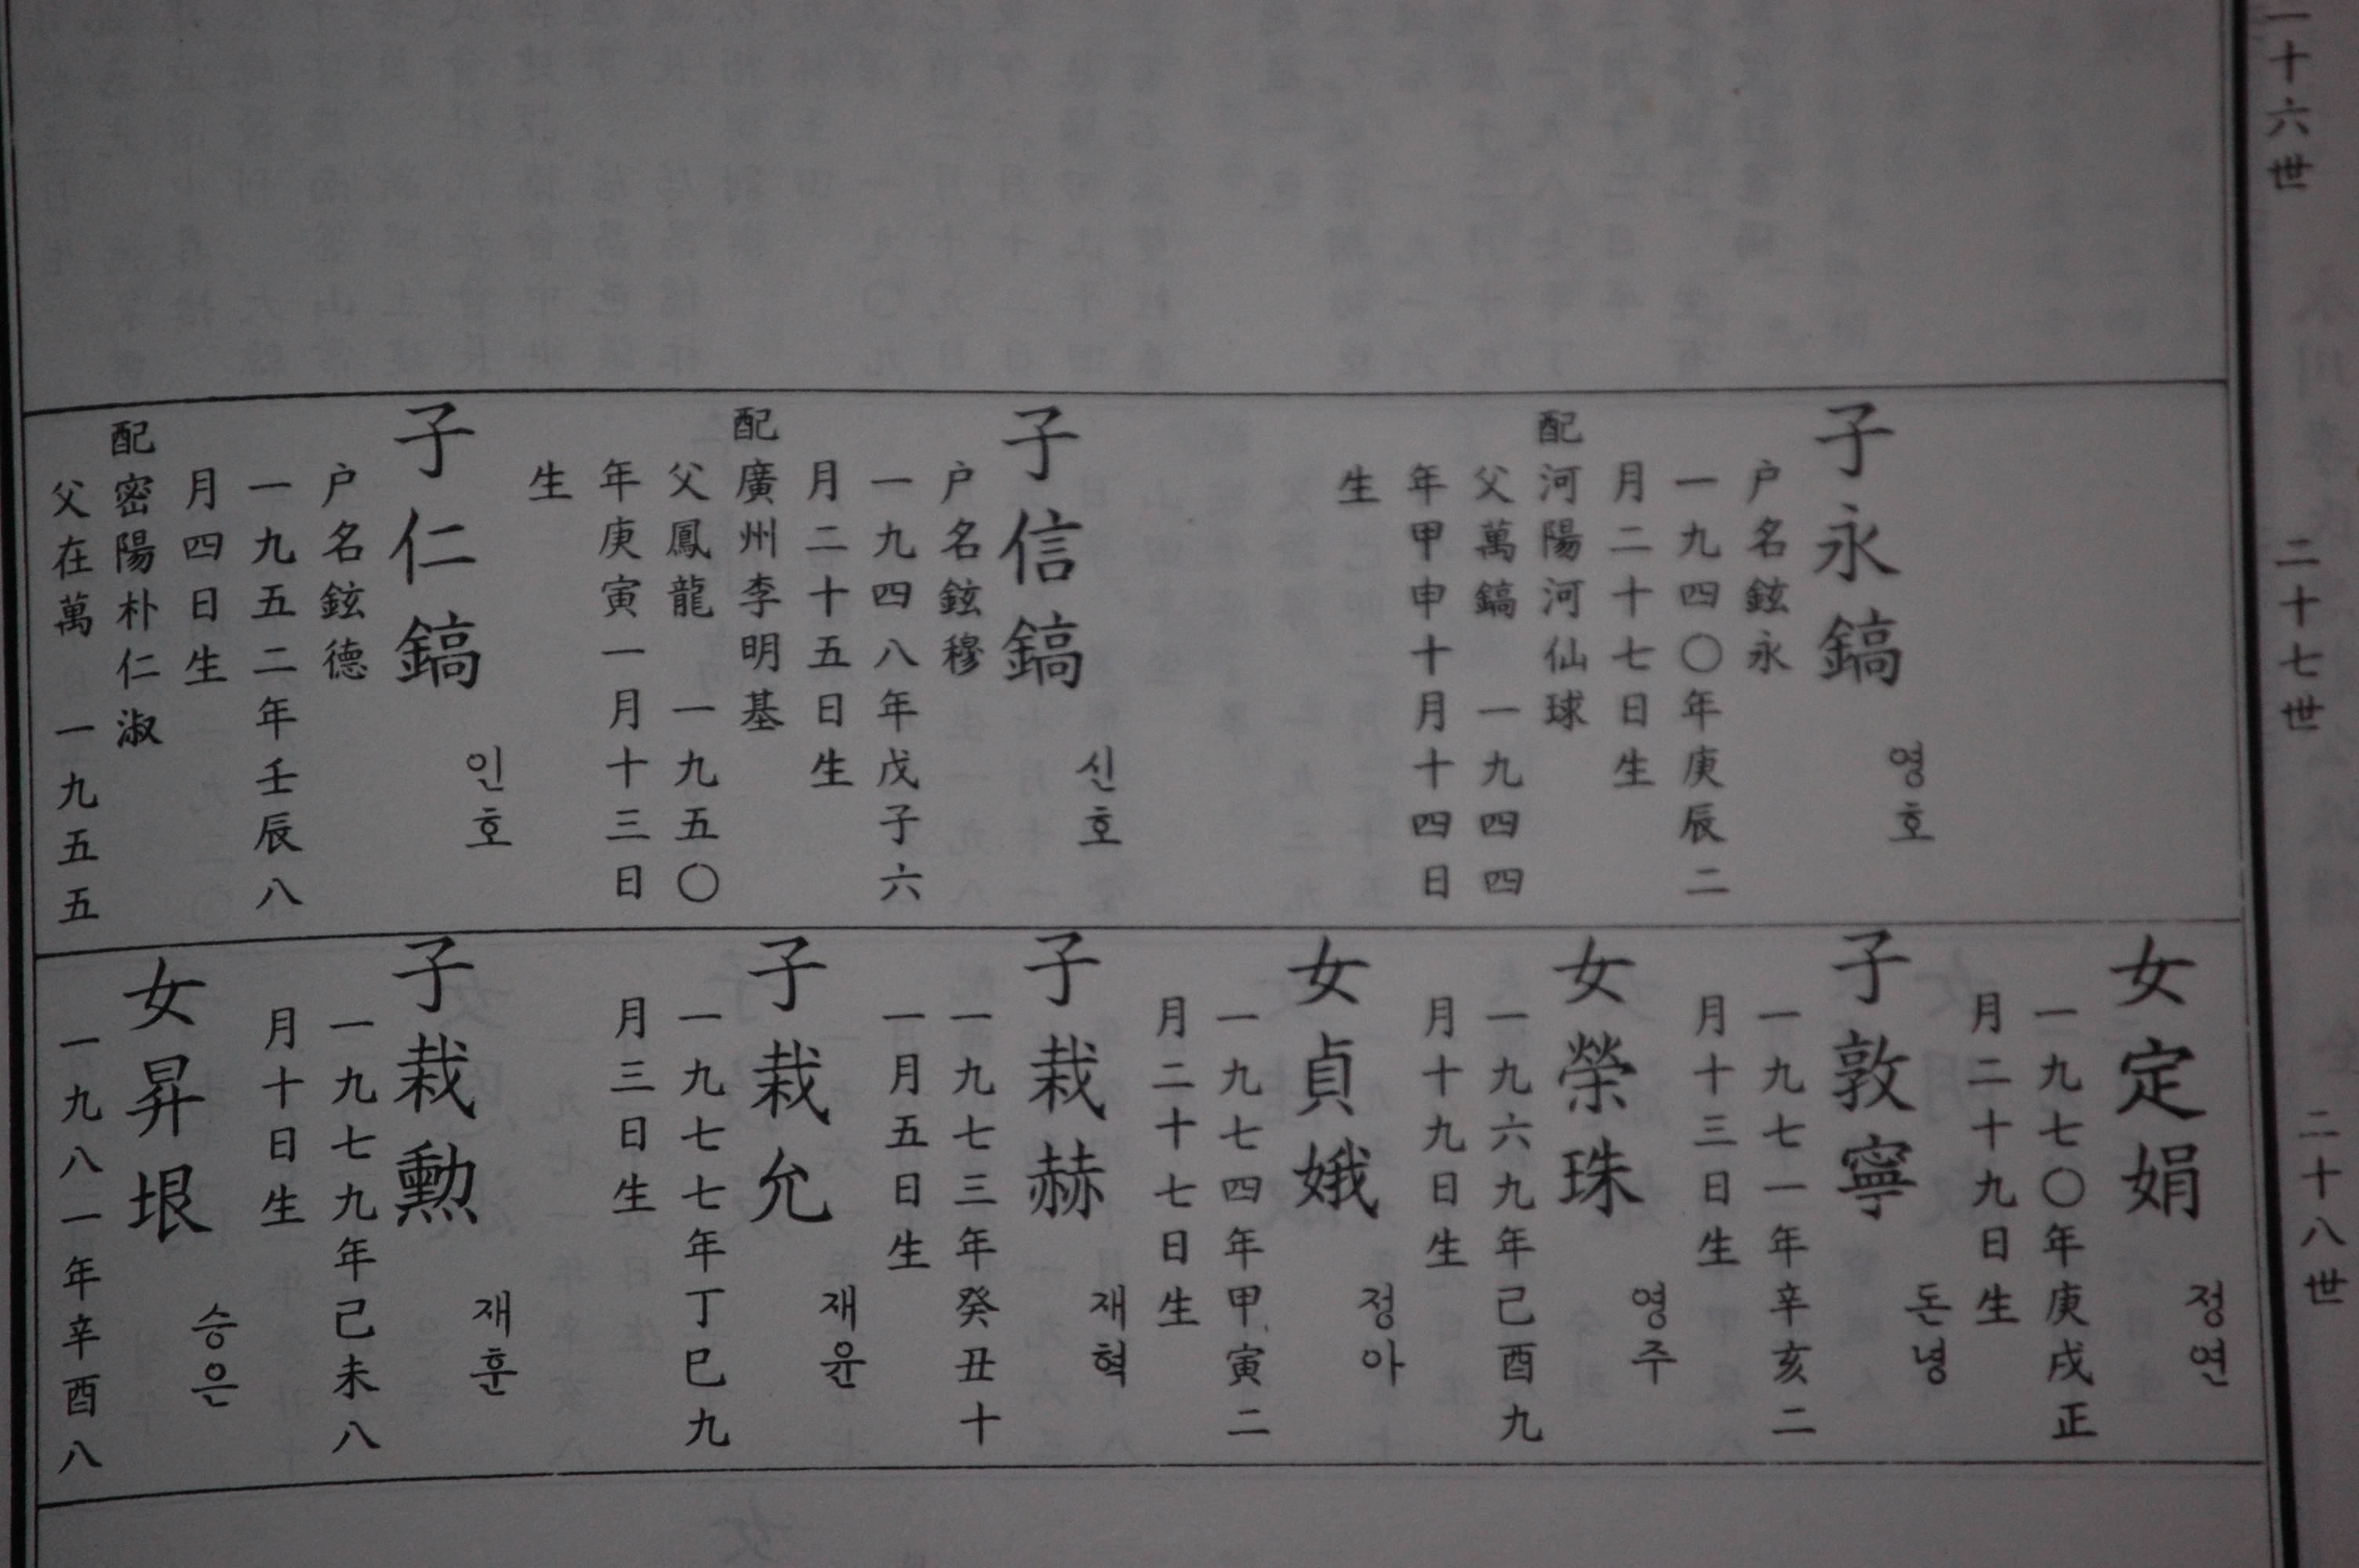 二十六世
二十七世
二十八世
子永鎬 영호
户名鉉永
一九四〇年庚辰二
月二十七日生
配河陽河仙球
父萬鎬 一九四四
年甲申十月十四日
生
子信鎬 신호
户名鉉穆
一九四八年戊子六
月二十五日生
配廣州李明基
父鳳龍 一九五〇
年庚寅一月十三日
生
子仁鎬 인호
户名鉉德
一九五二年壬辰八
月四日生
配密陽朴仁淑
父在萬 一九五五
女定娟 정연
一九七〇年庚戌正
月二十九日生
子敦寧 돈녕
一九七一年辛亥二
月十三日生
女榮珠 영주
一九六九年己酉九
月十九日生
女貞娥 정아
一九七四年甲寅二
月二十七日生
子栽赫 재혁
一九七三年癸丑十
一月五日生
子栽允 재윤
一九七七年丁巳九
月三日生
子栽勳 재훈
一九七九年己未八
月十日生
女昇垠 승은
一九八一年辛酉八